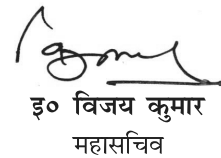 इ० विजय कुमार
महासचिव